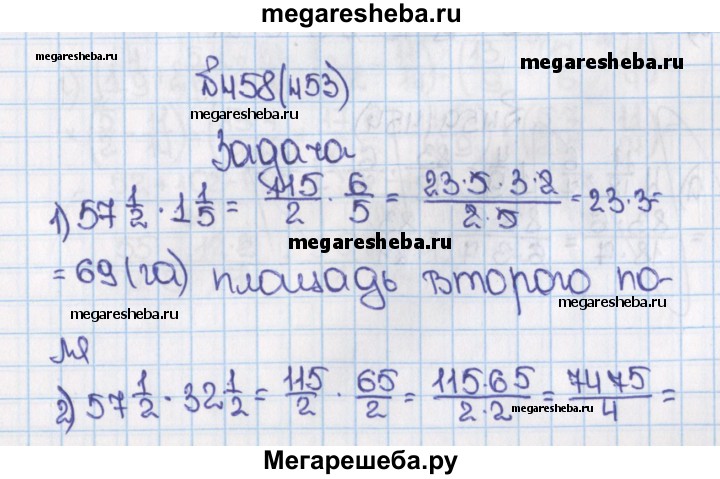 megaresheba.ru
megaresheba.ru
megaresheba.ru
№458(453)
megaresheba.ru
Задача
1) 57 1/2 · 1 1/5 = 115/2 · 6/5 = 23·5·3·2/2·5 = 23·3=
megaresheba.ru
= 69 (га) площадь второго по-
megaresheba.ru
megaresheba.ru
ля
2) 57 1/2 · 32 1/2 = 115/2 · 65/2 = 115·65/2·2 = 7475/4 =
megaresheba.ru
Мегарешеба.ру